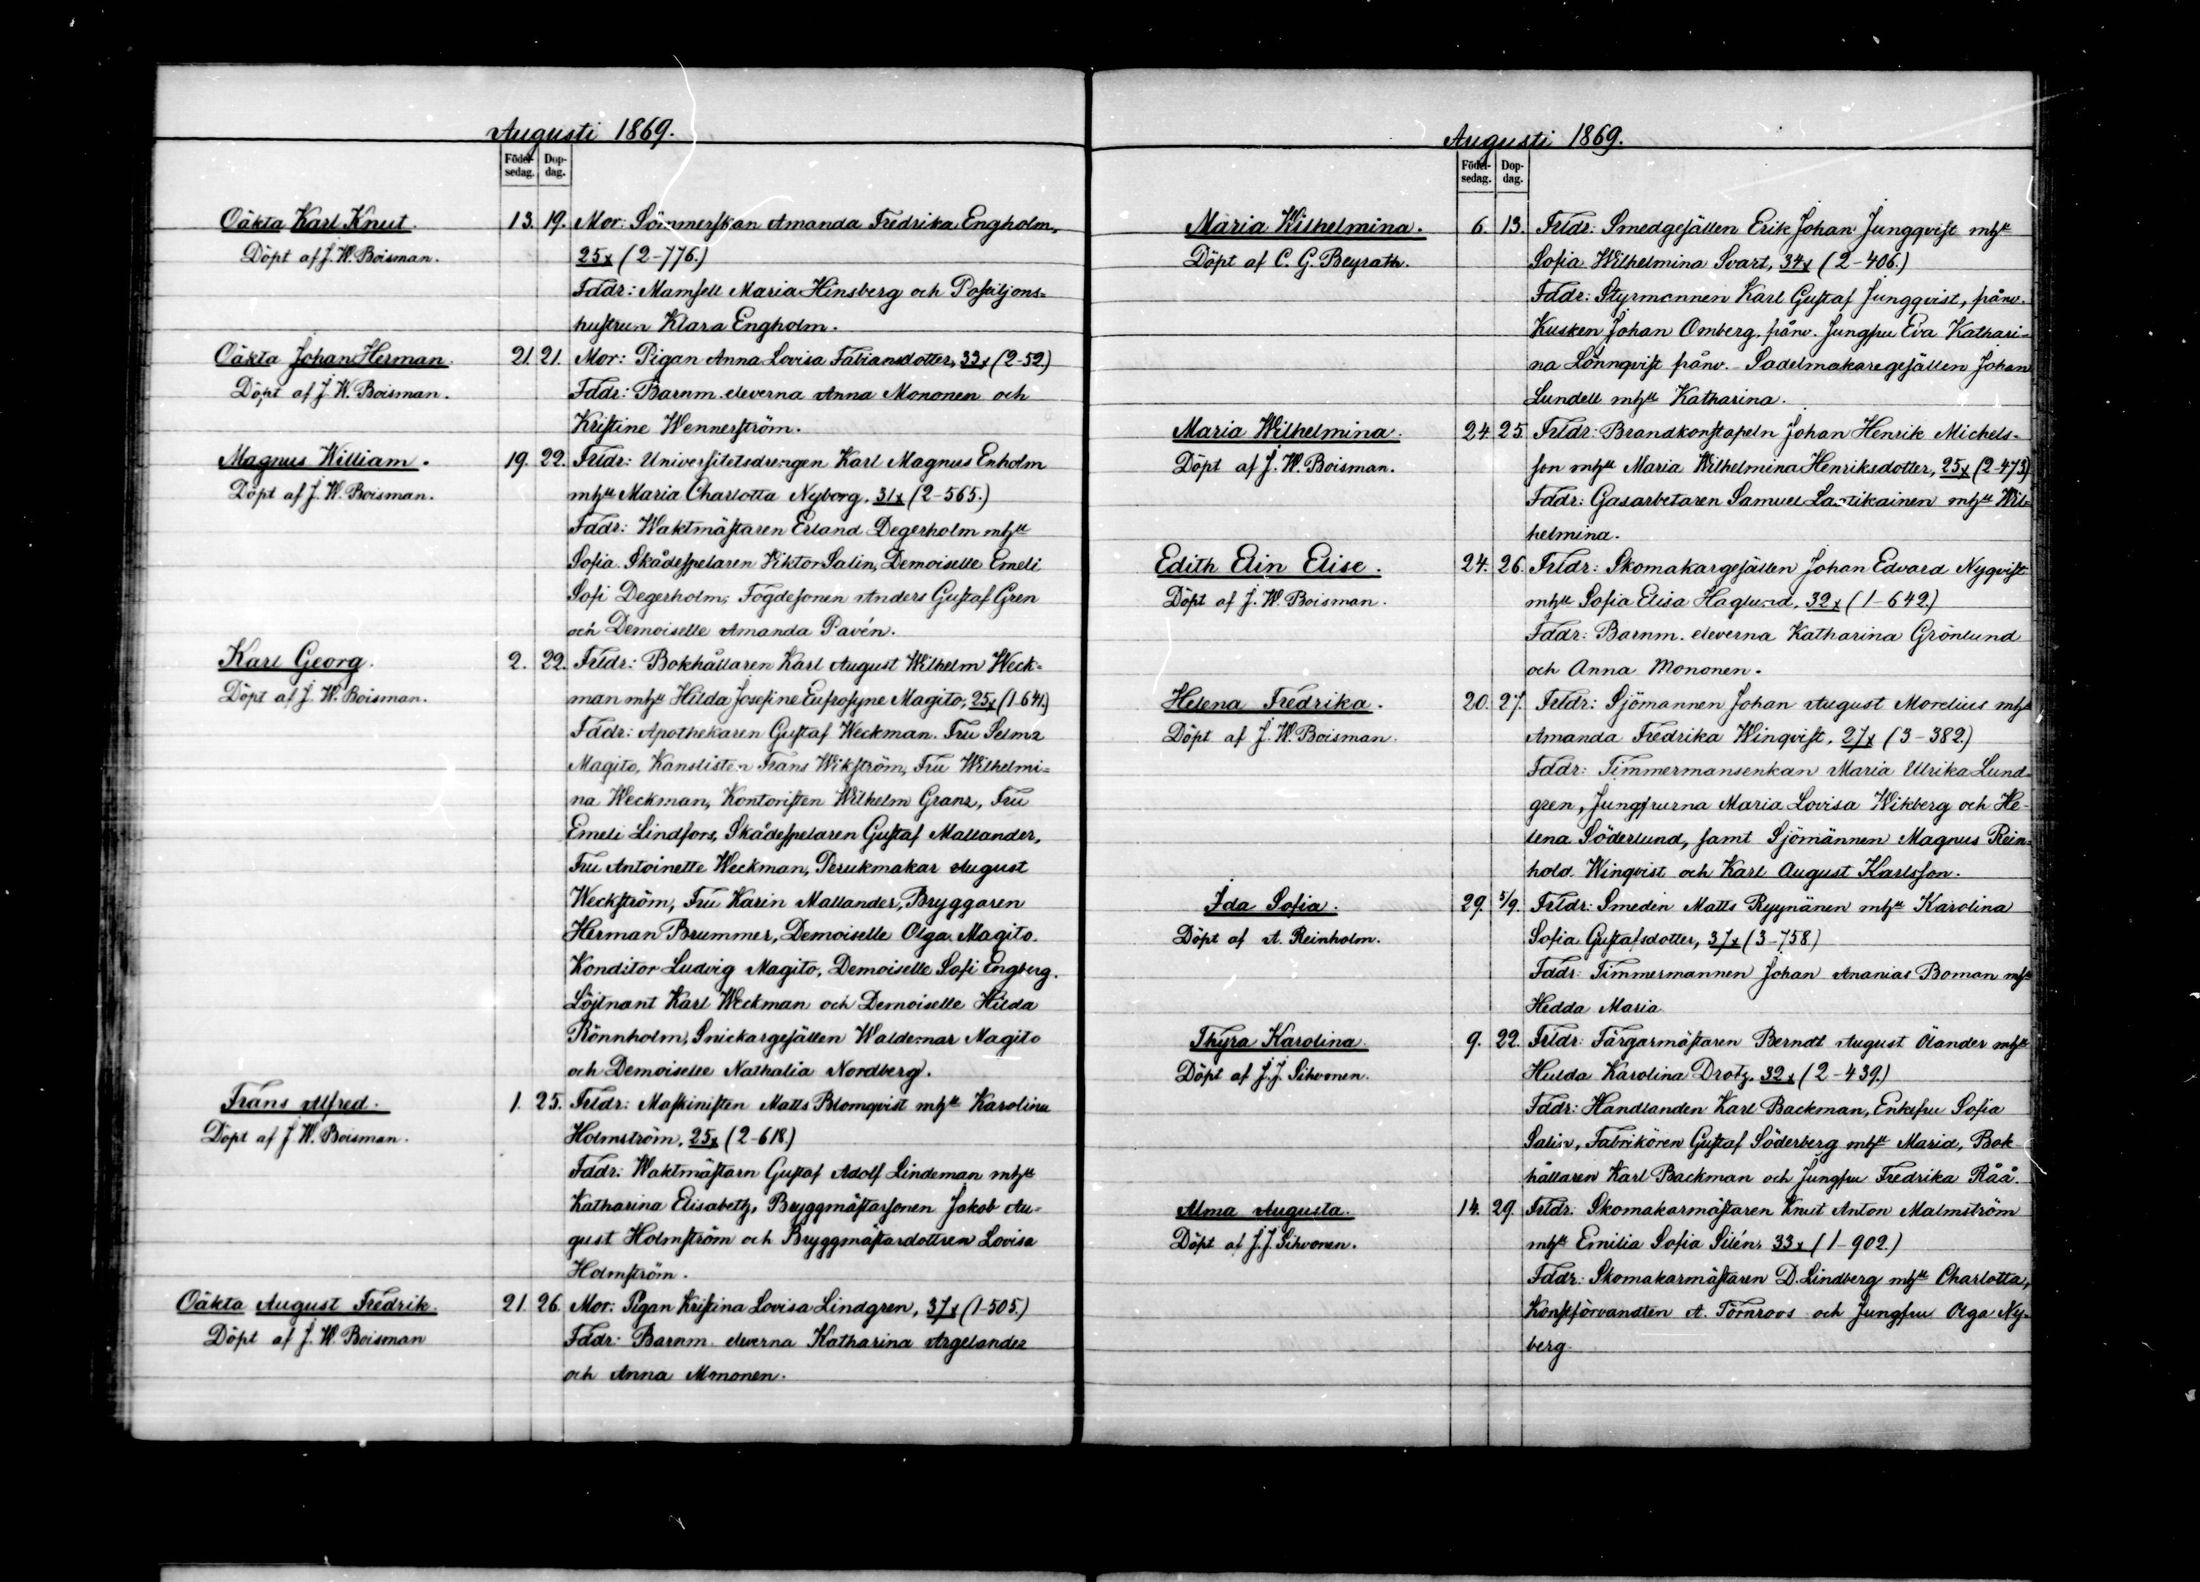 Augusti 1869.
Födel- Dop-
sedag. dag.
Oäkta Karl Knut. 13. 19. Mor: Sömmerskan Amanda Fredrika Engholm,
Döpt af J. W. Boisman. 25x (2-776.)
Fddr: Mamsell Maria Hinsberg och Postiljons=
hustrun Klara Engholm.
Oäkta Johan Herman. 21. 21. Mor: Pigan Anna Lovisa Fabiansdotter, 33x (2-52)
Döpt af J. W. Boisman. Fddr: Barnm. eleverna Anna Mononen och
Kristine Wennerström.
Magnus William. 19. 22. Frldr: Universitetsdrengen Karl Magnus Enholm
Döpt af J. W. Boisman. mhu Maria Charlotta Nyborg, 31x (2-565.)
Fddr: Waktmästaren Erland Degerholm mhu
Sofia. Skådespelaren Viktor Salin, Demoiselle Emeli
Sofi Degerholm, Fogdesonen Anders Gustaf Gren
och Demoiselle Amanda Pavén.
Karl Georg. 2. 22. Frldr: Bokhållaren Karl August Wilhelm Weck=
Döpt af J. W. Boisman. man mhu Hilda Josefine Eufrosyne Magito, 25x (1-641.)
Fddr: Apothekaren Gustaf Weckman. Fru Selma
Magito, Kanslisten Frans Wikström, Fru Wilhelmi=
na Weckman, Kontoristen Wilhelm Granz, Fru
Emeli Lindfors, Skådespelaren Gustaf Mallander,
Fru Antoinette Weckman, Perukmakar August
Weckström, Fru Karin Mallander, Bryggaren
Herman Brummer, Demoiselle Olga Magito.
Konditor Ludvig Magito, Demoiselle Sofi Engberg.
Löjtnant Karl Weckman och Demoiselle Hilda
Rönnholm, Snickargesällen Waldemar Magito
och Demoiselle Nathalia Nordberg.
Frans Alfred. 1. 25. Frldr: Maskinisten Matts Blomqvist mhu Karolina
Döpt af J. W. Boisman. Holmström, 25x (2-618.)
Fddr: Waktmästarn Gustaf Adolf Lindeman mhu
Katharina Elisabeth, Bryggmästarsonen Jakob Au=
gust Holmström och Bryggmästardottren Lovisa
Holmström.
Oäkta August Fredrik. 21. 26. Mor: Pigan Kristina Lovisa Lindgren, 37x (1-505.)
Döpt af J. W. Boisman Fddr: Barnm. eleverna Katharina Argelander
och Anna Mononen.
Augusti 1869.
Födel- Dop-
sedag. dag.
Maria Wilhelmina. 6. 13. Frldr: Smedgesällen Erik Johan Jungqvist mhu
Döpt af C. G. Beyrath. Sofia Wilhelmina Svart, 34x (2-406.)
Fddr: Styrmannen Karl Gustaf Jungqvist, frånv.
Kusken Johan Omberg, frånv. Jungfru Eva Kathari=
na Lönnqvist frånv. Sadelmakaregesällen Johan
Lundell mhu Katharina.
Maria Wilhelmina. 24. 25. Frldr: Brandkonstapeln Johan Henrik Michels=
Döpt af J. W. Boisman. son mhu Maria Wilhelmina Henriksdotter, 25x (2-473)
Fddr: Gasarbetaren Samuel Lastikainen mhu Wil=
helmina.
Edith Elin Elise. 24. 26. Frldr: Skomakargesällen Johan Edvard Nyqvist
Döpt af J. W. Boisman. mhu Sofia Elisa Haglund, 32x (1-642.)
Fddr: Barnm. eleverna Katharina Grönlund
och Anna Mononen.
Helena Fredrika. 20. 27. Frldr: Sjömannen Johan August Morelius mhu
Döpt af J. W. Boisman. Amanda Fredrika Winqvist, 27x (3-382.)
Fddr: Timmermansenkan Maria Ulrika Lund=
gren, Jungfrurna Maria Lovisa Wikberg och He=
lena Söderlund, samt Sjömännen Magnus Rein=
hold Winqvist och Karl August Karlsson.
Ida Sofia. 29. 5/9. Frldr: Smeden Matts Ryynänen mhu Karolina
Döpt af A. Reinholm. Sofia Gustafsdotter, 37x (3-758.)
Fddr: Timmermannen Johan Ananias Boman mhu
Hedda Maria
Thyra Karolina. 9. 22. Frldr: Färgarmästaren Berndt August Ölander mhu
Döpt af J. J. Sihvonen. Hulda Karolina Drotz, 32x (2-439.)
Fddr: Handlanden Karl Backman, Enkefru Sofia
Salin, Fabrikören Gustaf Söderberg mhu Maria, Bok
hållaren Karl Backman och Jungfru Fredrika Råå.
Alma Augusta. 14. 29. Frldr: Skomakarmästaren Knut Anton Malmström
Döpt af J. J. Sihvonen. mhu Emilia Sofia Silén, 33x (1-902.)
Fddr: Skomakarmästaren D. Lindberg mhu Charlotta,
Konstförvandten A. Törnroos och Jungfru Olga Ny-
berg.